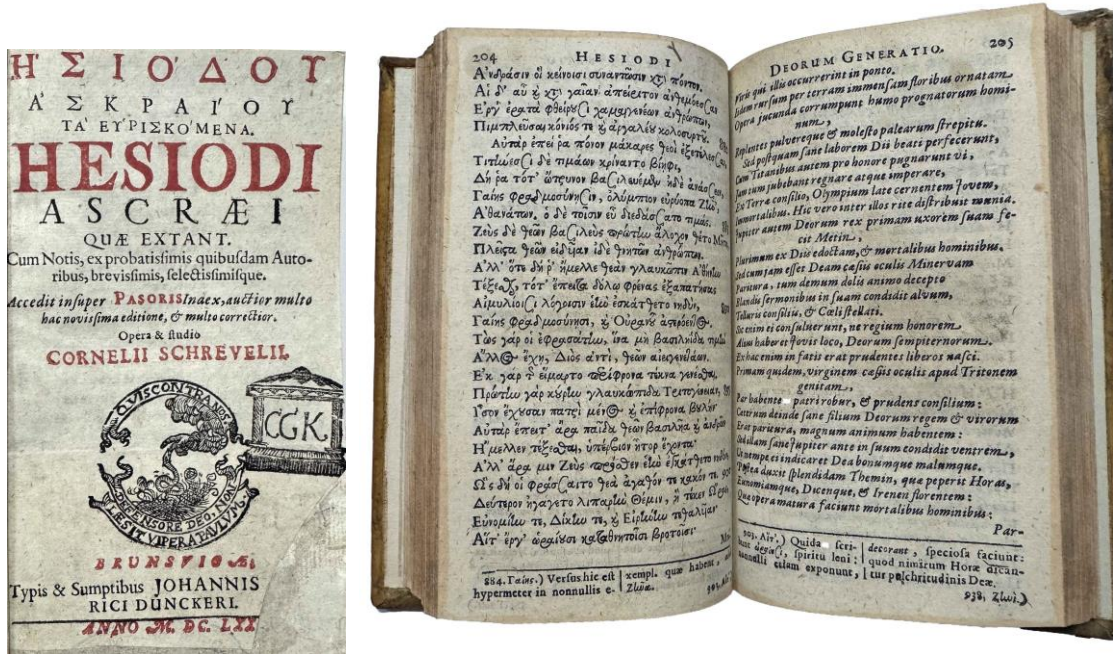 ἩΣΙΟΔΟΥ
ἈΣΚΡΑΙΟΥ
ΤΑ ΕΥΡΙΣΚΟΜΕΝΑ.
HESIODI
ASCRÆI
QUÆ EXTANT.
Cum Notis, ex probatissimis quibusdam Auto-
ribus, brevissimis, selectissimisque.
Accedit insuper PASORIS Index, auctior multo
hac novissima editione, & multo correctior.
Opera & studio
CORNELII SCHREVELII.
QUIS CONTRA NOS
DEFENSORE DEO, NON
LÆSIT VIPERA PAULUM.
CGK
BRUNSVIGÆ,
Typis & Sumptibus JOHANNIS
RICI DUNCKERI.
ANNO M. DC. LXX
204 HESIODI
Ἀνδράσιν οἳ κείνοισι συναντῶσιν κατὰ πόντον.
Αἱ δ' αὖ καὶ κατὰ γαῖαν ἀπείριτον ἀνθεμόεσσαν
Ἔργ' ἐρατὰ φθείρουσι χαμαιγενέων ἀνθρώπων,
Πιμπλεῦσαι κόνιός τε καὶ ἀργαλέου κολοσυρτοῦ.
Αὐτὰρ ἐπεί ῥα πόνον μάκαρες θεοὶ ἐξετέλεσσαν,
Τιτήνεσσι δὲ τιμάων κρίναντο βίηφι,
Δή ῥα τότ' ὤτρυνον βασιλευέμεν ἠδὲ ἀνάσσειν
Γαίης φραδμοσύνῃσιν, ὀλύμπιον εὐρύοπα Ζῆν,
Ἀθανάτων. ὁ δὲ τοῖσιν εὖ διεδάσσατο τιμάς.
Ζεὺς δὲ θεῶν βασιλεὺς πρώτην ἄλοχον θέτο Μῆτιν
Πλεῖστα θεῶν εἰδυῖαν ἰδὲ θνητῶν ἀνθρώπων.
Ἀλλ' ὅτε δή ῥ' ἤμελλε θεὰν γλαυκῶπιν Ἀθήνην
Τέξεσθαι, τότ' ἔπειτα δόλῳ φρένας ἐξαπατήσας
Αἱμυλίοισι λόγοισιν ἑὴν ἐσκάτθετο νηδὺν,
Γαίης φραδμοσύνῃσι, καὶ Οὐρανοῦ ἀστερόεντος.
Τὼς γάρ οἱ ἐφρασάτην, ἵνα μὴ βασιληίδα τιμὴν
Ἄλλος ἔχῃ, Διὸς ἀντὶ, θεῶν αἰειγενετάων.
Ἐκ γὰρ τῆς εἵμαρτο περίφρονα τέκνα γενέσθαι,
Πρώτην γὰρ κούρην γλαυκώπιδα Τριτογένειαν,
Ἶσον ἔχουσαν πατρὶ μένος καὶ ἐπίφρονα βουλήν.
Αὐτὰρ ἔπειτ' ἄρα παῖδα θεῶν βασιλῆα καὶ ἀνδρῶν
Ἤμελλεν τέξεσθαι, ὑπέρβιον ἦτορ ἔχοντα.
Ἀλλ' ἄρα μιν Ζεὺς πρόσθεν ἑὴν ἐσκάτθετο νηδὺν,
Ὡς δή οἱ φράσσαιτο θεὰ ἀγαθόν τε κακόν τε.
Δεύτερον ἠγάγετο λιπαρὴν Θέμιν, ἣ τέκεν Ὥρας
Εὐνομίην τε, Δίκην τε, καὶ Εἰρήνην τεθαλυῖαν
Αἵτ' ἔργ' ὡραίουσι καταθνητοῖσι βροτοῖσι·
884. Γαίης.) Versus hic est
hypermeter in nonnullis e-
xempl. quæ habent,
Ζῆνα.
DEORUM GENERATIO. 205
Viris qui illis occurrerint in ponto.
Iidem rursum per terram immensam floribus ornatam
Opera jucunda corrumpunt humo prognatorum homi-
num,
Replentes pulvereque & molesto palearum strepitu.
Sed postquam sane laborem Dii beati perfecerunt,
Cum Titanibus autem pro honore pugnarunt vi,
Jam tum jubebant regnare atque imperare,
Ex Terra consilio, Olympium late cernentem Jovem,
Immortalibus. Hic vero inter illos rite distribuit munia.
Jupiter autem Deorum rex primam uxorem suam fe-
cit Metin,
Plurimum ex Diis edoctam, & mortalibus hominibus.
Sed cum jam esset Deam cæsiis oculis Minervam
Paritura, tum demum dolis animo decepto
Blandis sermonibus in suam condidit alvum,
Telluris consiliis, & Cœli stellati.
Sic enim ei consuluerunt, ne regium honorem
Alius haberet Jovis loco, Deorum sempiternorum.
Ex hac enim in fatis erat prudentes liberos nasci.
Primam quidem, virginem cæsiis oculis apud Tritonem
genitam,
Par habente patri robur, & prudens consilium:
Ceterum deinde sane filium Deorum regem & virorum
Erat paritura, magnum animum habentem:
Sed illam sane Jupiter ante in suum condidit ventrem,
Ut nempe ei indicaret Dea bonumque malumque.
Postea duxit splendidam Themin, quæ peperit Horas,
Eunomiamque, Dicenque, & Irenen florentem:
Quæ opera matura faciunt mortalibus hominibus:
Par-
903. Αἵτ'.) Quida scri-
bunt spiritu leni;
nonnulli etiam exponunt,
decorant, speciosa faciunt:
quod nimicum Horæ dican-
tur pulchritudinis Deæ.
938, Ζηνὶ.)